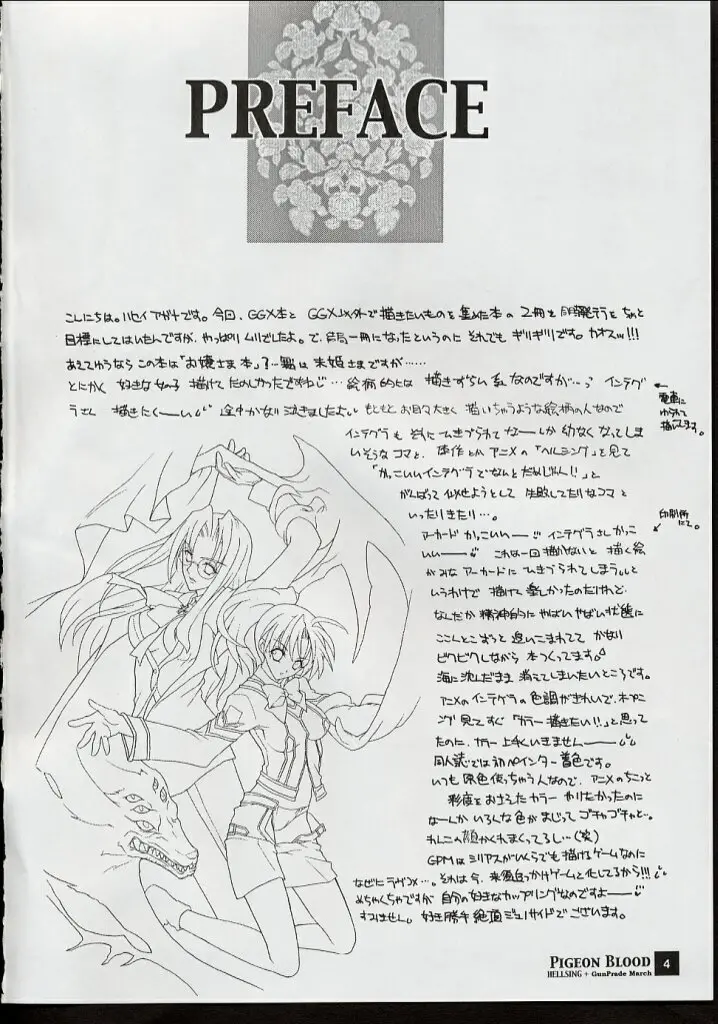 PREFACE
こんにちは。ハセイアガナです。今回、GGX本と GGX以外で描きたいものを集めた本の2冊を同時発行をちょっと
目標にしてはいたんですが、やっぱりムリでしたよ。で、結局一冊になったというのに それでもギリギリです。カオスッ!!!
あえてゆうなら この本は「お嬢さま本」?…舞は末姫さまですが……
とにかく 好きな女の子 描けて たのしかったですねじ…絵柄的には 描きずらい系なのですが… インテグ
ラさん 描きたくーい 途中かなり泣きましたよ。もともと お目々大きく 描いちゃうような絵柄の人なので
電車に
ゆられて
描いてます。
インテグラも それに ひきずられて なーんか 幼なくなってしま
いそうなコマと、原作とかアニメの「ヘルシング」を見て
「かっこいいインテグラでなんとだめじゃん!!」と
がんばって 似せようとして 失敗してたりなコマと
いったりきたり…。
印刷所
にて。
アーカード かっこいいー インテグラさん かっこ
いいー これは一回描かないと 描く絵
がみな アーカードに ひきずられてしまうと
いうわけで 描けて 楽しかったのだけれど、
なんだか 精神的に やばいやばい状態に
とことこずっと 追いこまれてて かなり
ビクビクしながら 本つくってます。
海に沈んだまま 消えてしまいたいところです。
アニメの インテグラの 色調がきれいで、オープニ
ング 見て すぐ 「カラー描きたい!!」と思って
たのに、カラー 上手くいきませんー
同人誌では初ペインター着色です。
いつも 原色使っちゃう人なので、アニメのちょっと
彩度を おさえた カラー やりたかったのに
なーんか いろんな色が まじって ゴチャゴチャと…。
わんこの顔かくれまくってるし…(笑)
GPMはシリアスがいくらでも描けるゲームなのに
なぜにラヴコメ…。それは今、来須追っかけゲームと化してるから!!!
めちゃくちゃですが 自分の好きなカップリングなのですよー
すみません。好き勝手 絶頂 ジェノサイドでございます。
PIGEON BLOOD
HELLSING + GunPrade March
4